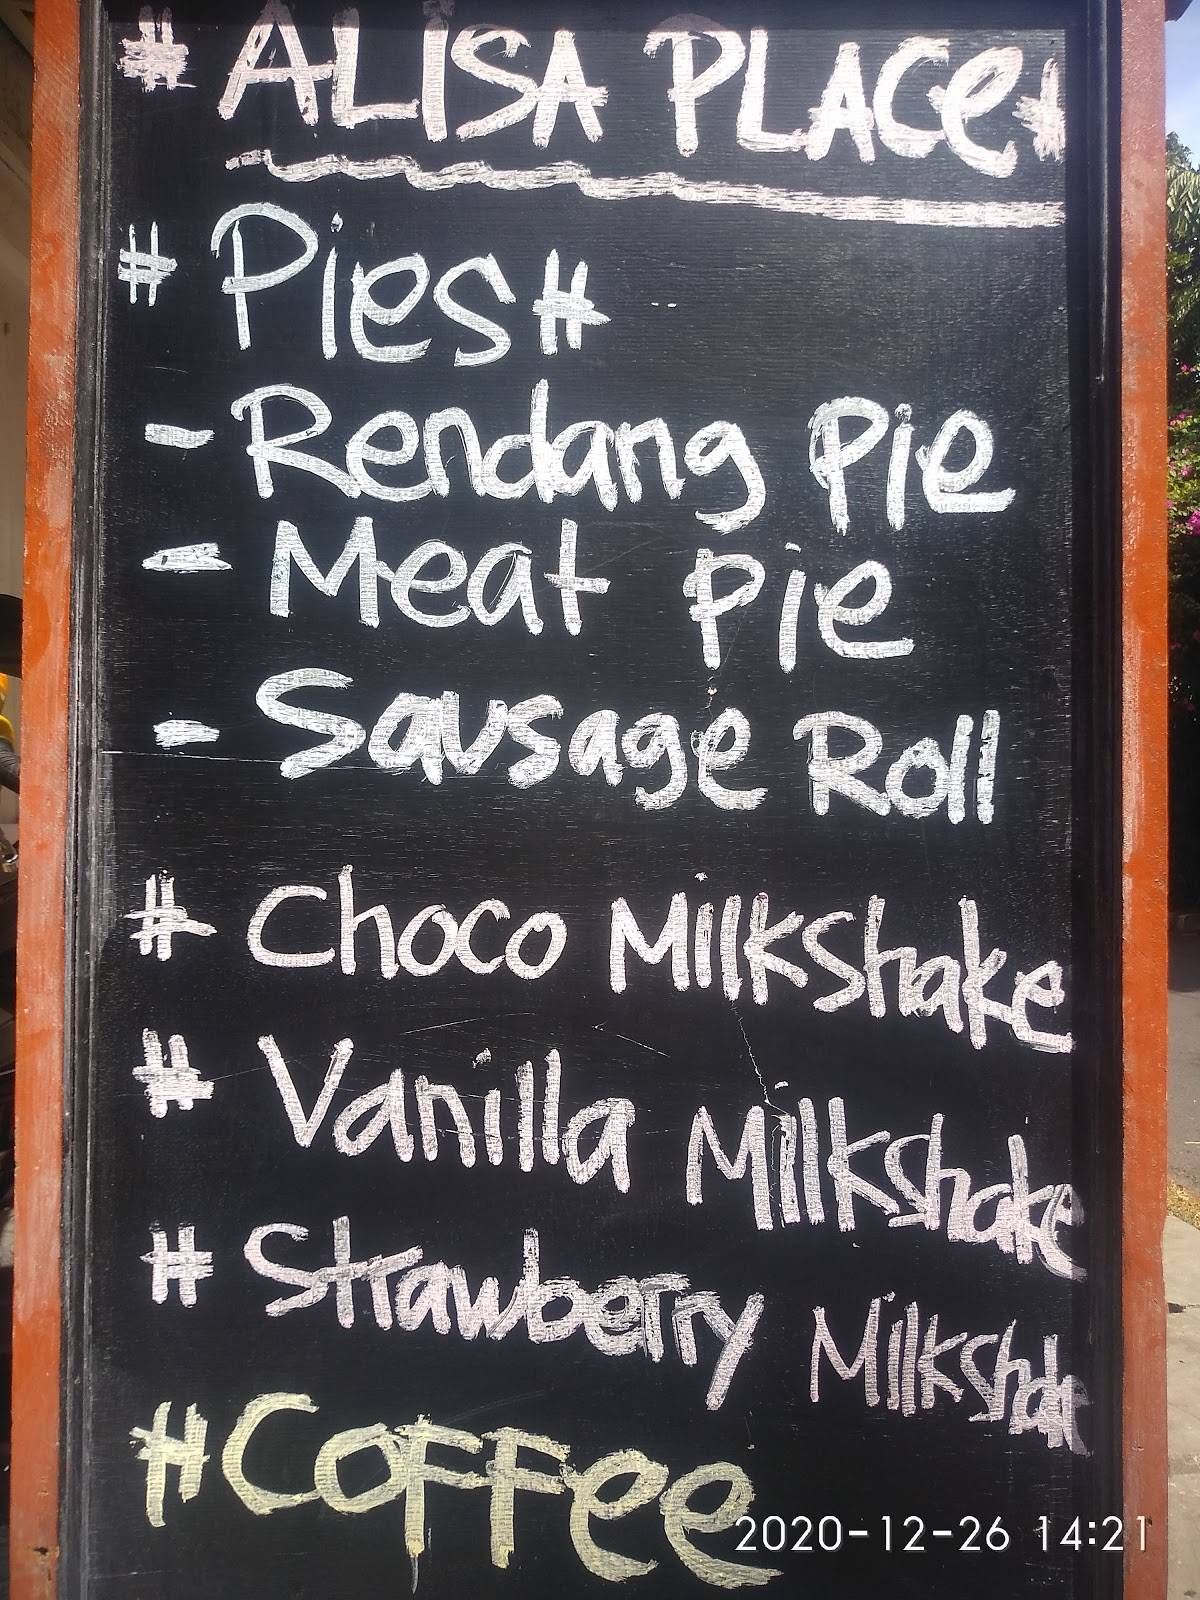 # ALISA PLACE #
# Pies #
- Rendang Pie
- Meat Pie
- Sausage Roll
# Choco Milkshake
# Vanilla Milkshake
# Strawberry Milkshake
# COFFee
2020-12-26 14:21